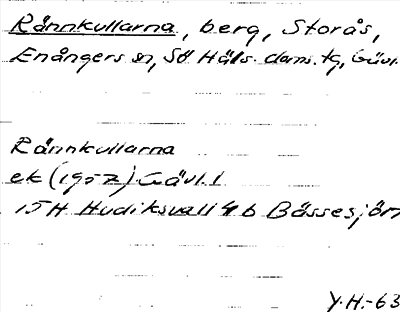 Rännkullarna, berg, Storås,
Enångers sn, Sö Häls. doms. tg, Gävl.
Rännkullarna
ek (1957) Gävl. l
15H Hudiksvall 4 b Bässesjön
Y.H.-63